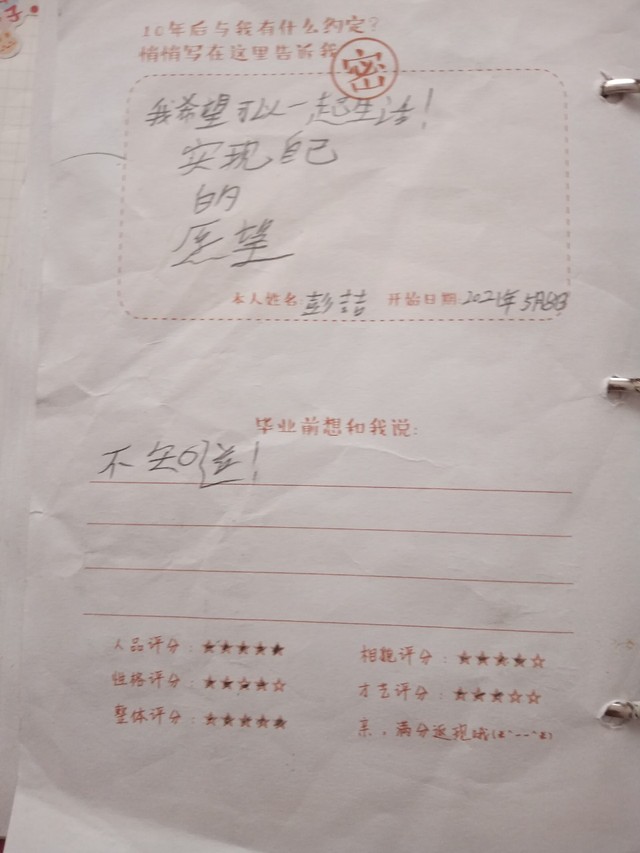 10年后与我有什么约定?
悄悄写在这里告诉我
密
我希望可以一起生活!
实现自己
的
愿望
本人姓名:彭喆 开始日期:2021年5月8日
毕业前想和我说:
不知道!
人品评分:★★★★★ 相貌评分:★★★★☆
性格评分:★★★★☆ 才艺评分:★★★☆☆
整体评分:★★★★★ 亲,满分返现哦(z^--^z)